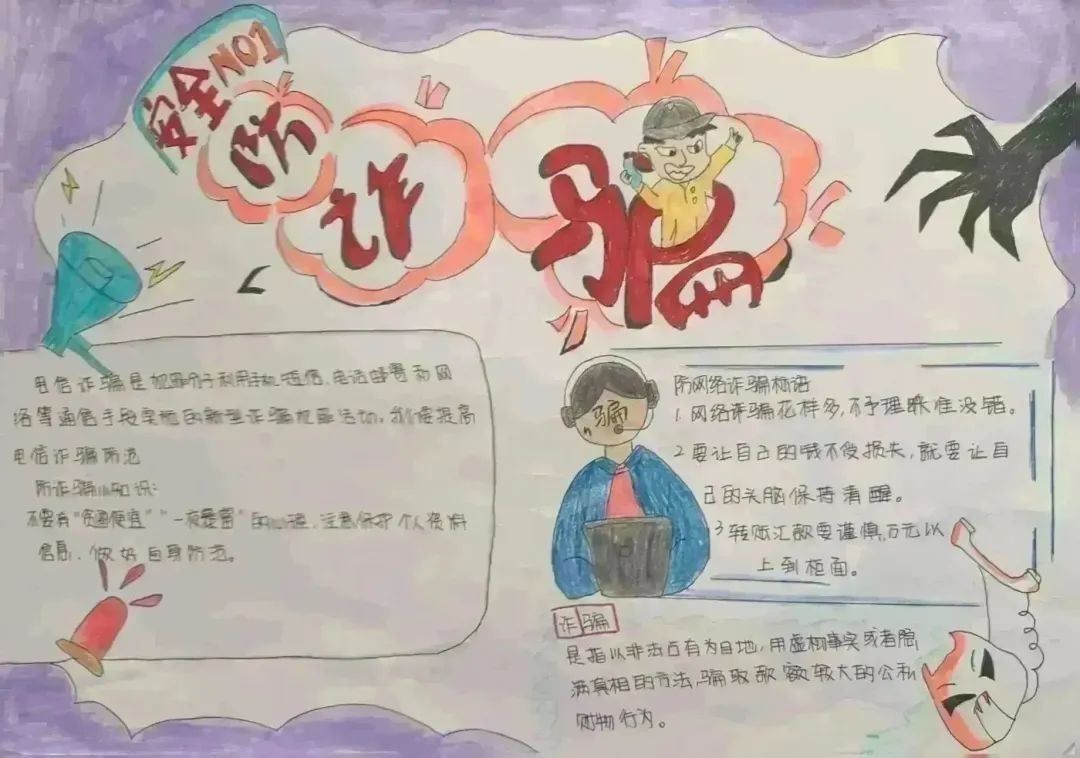 安全NO1
防诈骗
电信诈骗是犯罪分子利用手机短信、电话邮寄和网
络等通信手段实施的新型诈骗犯罪活动，我们要提高
电信诈骗防范
防诈骗小知识：
不要有“贪图便宜”“一夜暴富”的心理，注意保护个人资料
信息，做好自身防范。
骗
防网络诈骗标语
1.网络诈骗花样多，不予理睬准没错。
2要让自己的钱不受损失，就要让自
己的头脑保持清醒。
3转账汇款要谨慎，万元以
上到柜面。
诈骗
是指以非法占有为目地，用虚构事实或者隐
满真相的方法，骗取款额较大的公私
财物行为。